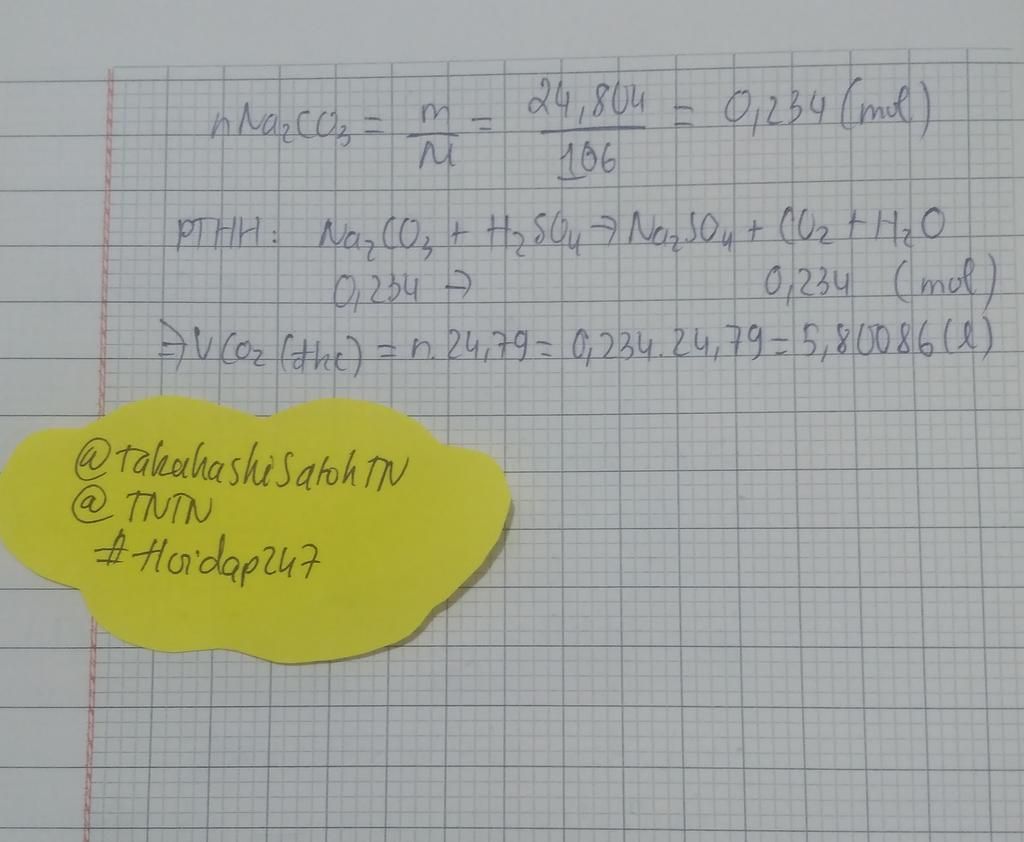 nNa₂CO₃ = m/M = 24,804/106 = 0,234 (mol)
PTHH: Na₂CO₃ + H₂SO₄ → Na₂SO₄ + CO₂ + H₂O
0,234 → 0,234 (mol)
⇒ VCO₂ (đkc) = n.24,79 = 0,234.24,79 = 5,80086 (l)
@TakahashiSatohTN
@TNTN
#Hoidap247